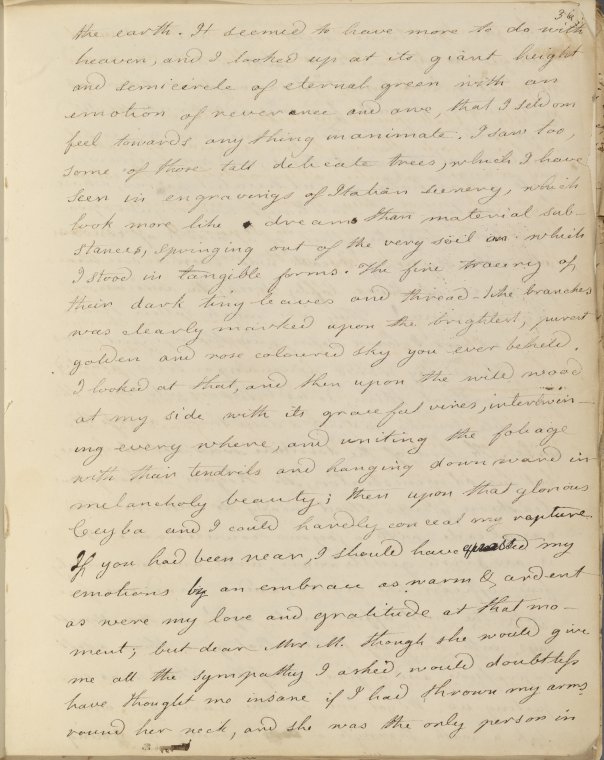 36
the earth. It seemed to have more to do with
heaven, and I looked up at its giant height
and semicircle of eternal green with an
emotion of reverence and awe, that I seldom
feel towards any thing inanimate. I saw too,
some of those tall delicate trees, which I have
seen in engravings of Italian scenery, which
look more like dreams than material sub-
stances, springing out of the very soil on which
I stood in tangible forms. The fine tracery of
their dark tiny leaves and thread-like branches
was clearly marked upon the brightest, purest
golden and rose coloured sky you ever beheld.
I looked at that, and then upon the wild wood
at my side with its graceful vines, intertwin-
ing every where, and uniting the foliage
with their tendrils and hanging downward in
melancholy beauty; then upon that glorious
Ceyba and I could hardly conceal my rapture.
If you had been near, I should have my
emotions by an embrace as warm & ardent
as were my love and gratitude at that mo-
ment; but dear Mrs M. though she would give
me all the sympathy I asked, would doubtless
have thought me insane if I had thrown my arms
round her neck, and she was the only person in